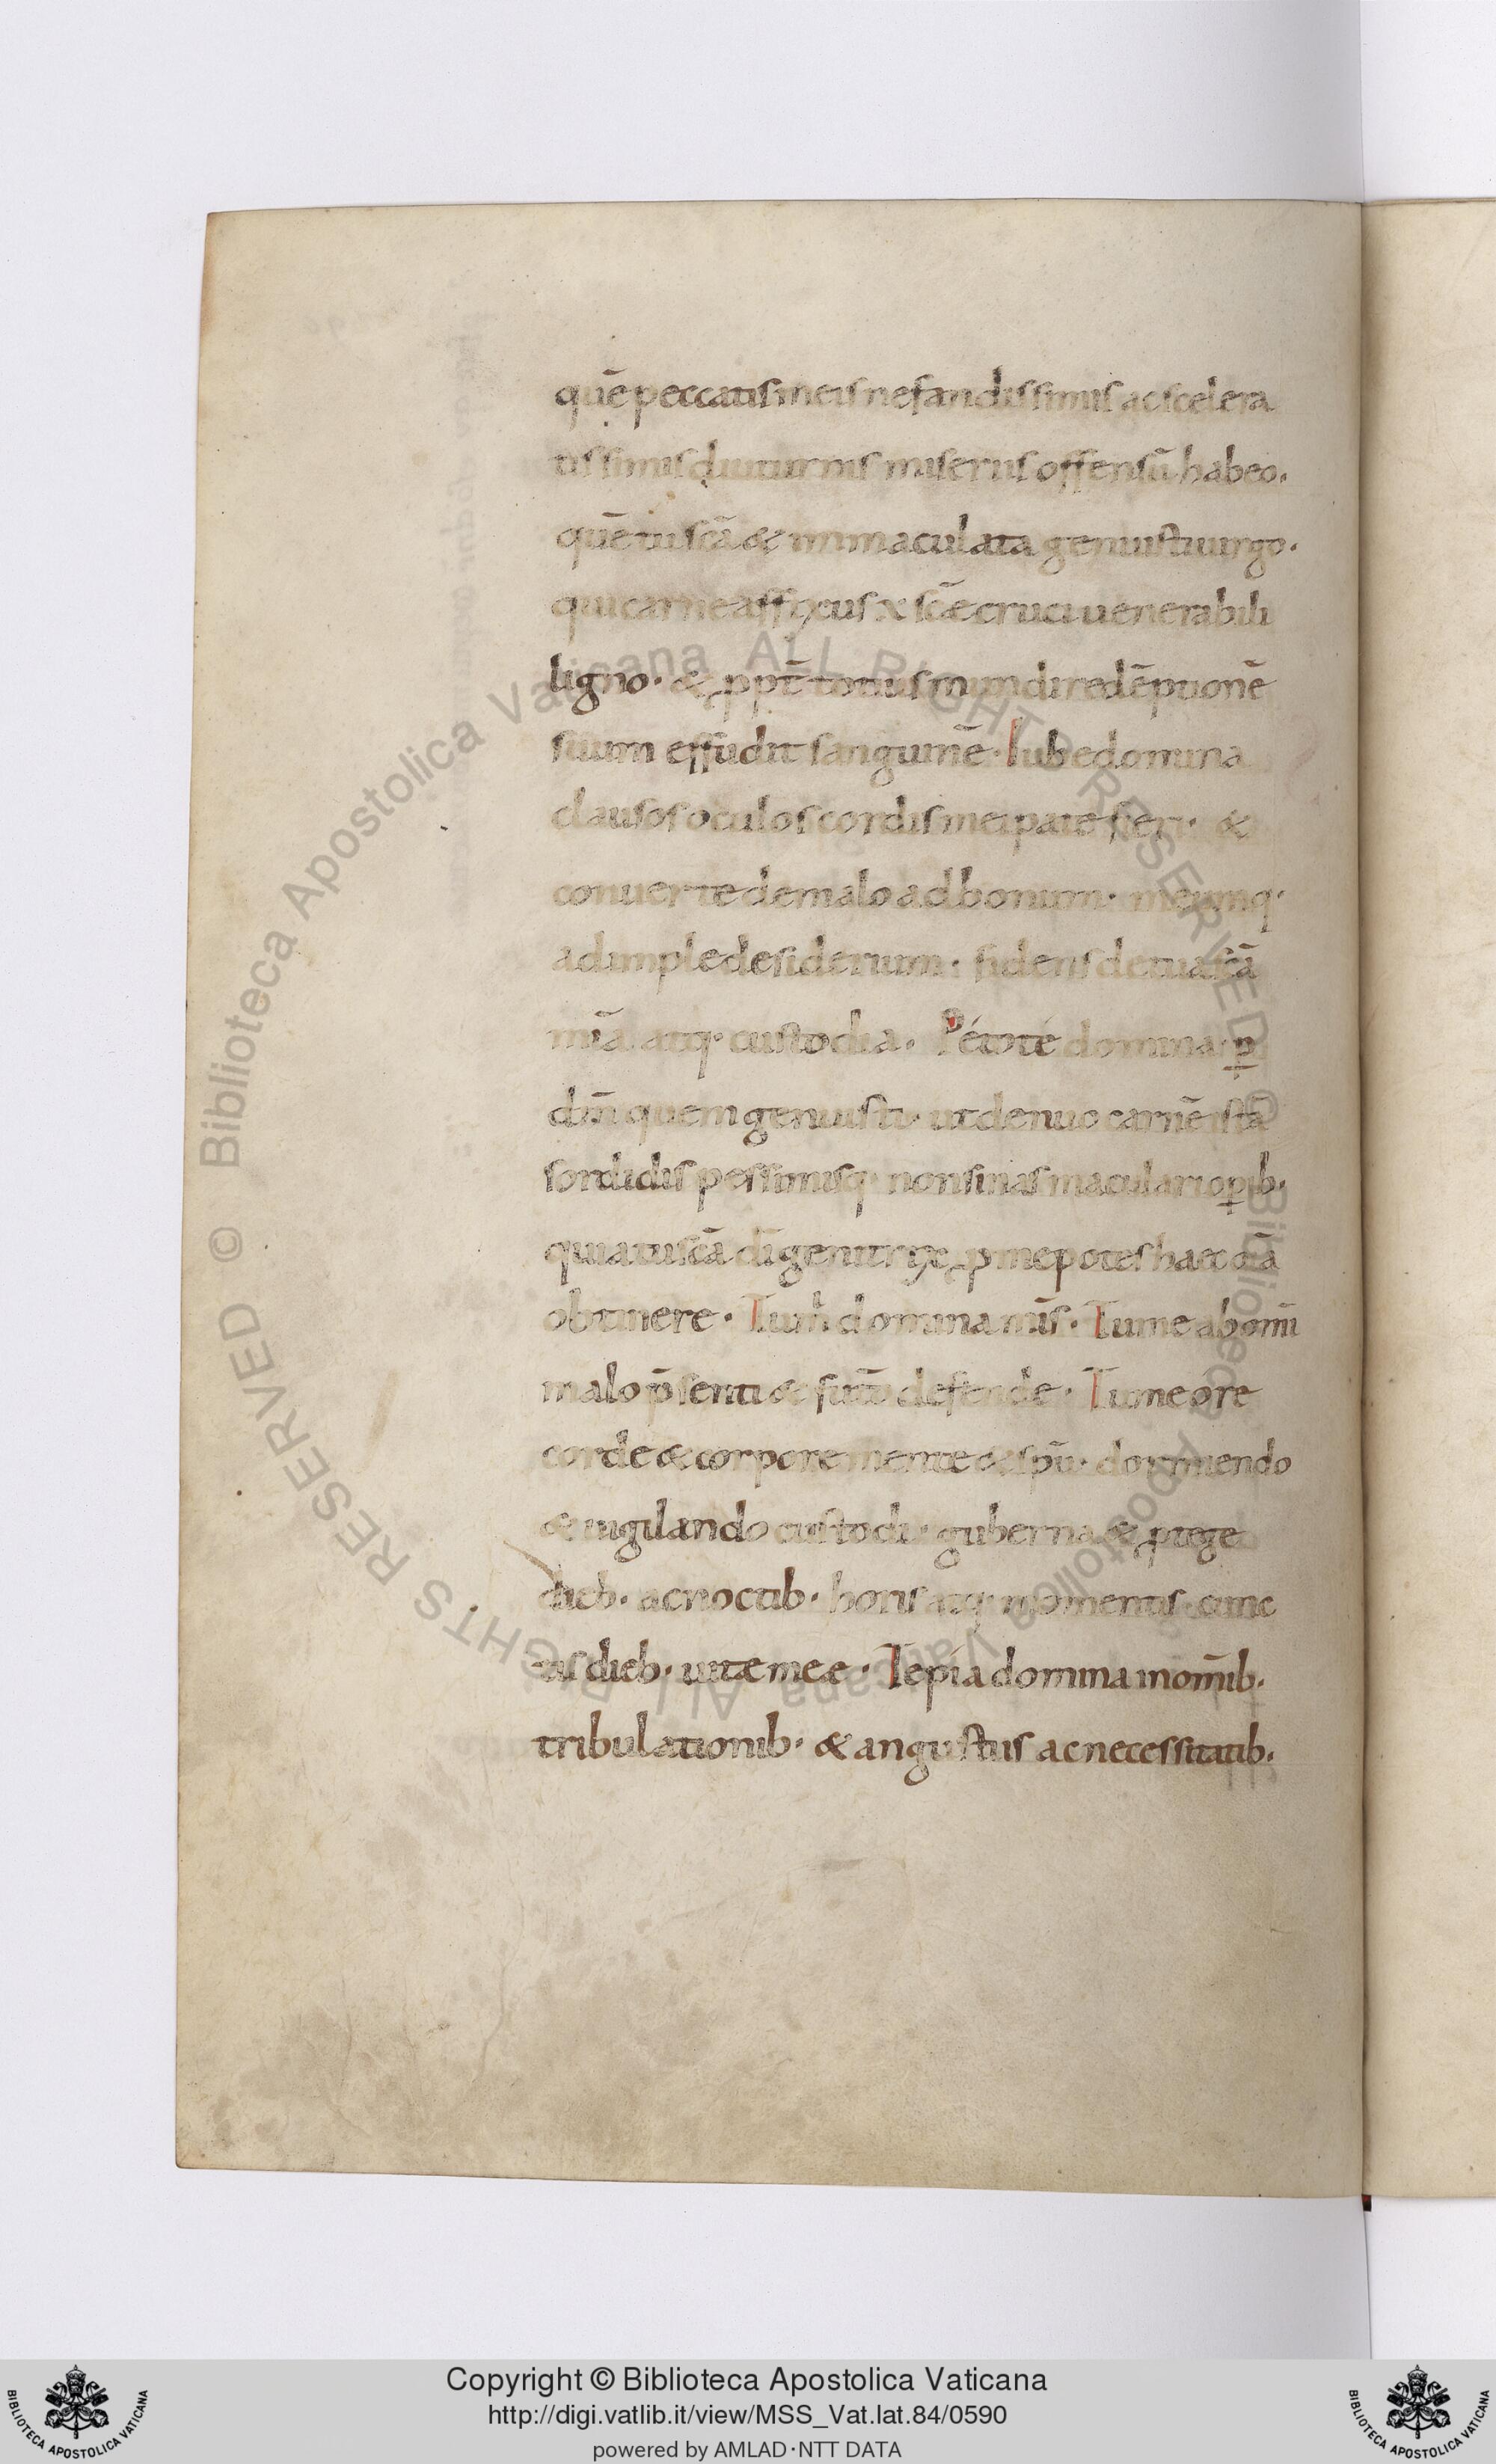 quē peccatis meis nefandissimis ac scelera
tissimis diuturnis miseriis offensū habeo.
quē tu scā & immaculata genuisti uirgo.
qui carne affixus x scæ cruci uenerabili
ligno. & ꝓpt̄ totius mundi redēptionē
suum effudit sanguinē. Iube domina
clausos oculos cordis mei patefieri. &
conuerte de malo ad bonum. meumq·
adimple desiderium. fidens de tua scā
mīa atq· custodia. Péto té domina ꝑ
dn̄m quem genuisti. ut denuo carnē istā
sordidis pessimisq· non sinas maculari oꝑib·
quia tu scā dī genitrix ꝓ me potes haec oīa
obtinere. Tu m̄ domina mīs. Tu me ab omī
malo p̄senti & futō defende. Tu me ore
corde & corpore mente & spū. dormiendo
& uigilando custodi. guberna & ꝓtege
dieb· ac noctib· horis atq· momentis. cunc
tis dieb· uitæ meæ. Te pía domina in om̄ib·
tribulationib· & angustiis ac necessitatib·
Biblioteca Apostolica Vaticana ALL RIGHTS RESERVED ©
Biblioteca Apostolica Vaticana ALL RIGHTS RESERVED ©
Copyright © Biblioteca Apostolica Vaticana
http://digi.vatlib.it/view/MSS_Vat.lat.84/0590
powered by AMLAD·NTT DATA
BIBLIOTECA APOSTOLICA VATICANA
BIBLIOTECA APOSTOLICA VATICANA